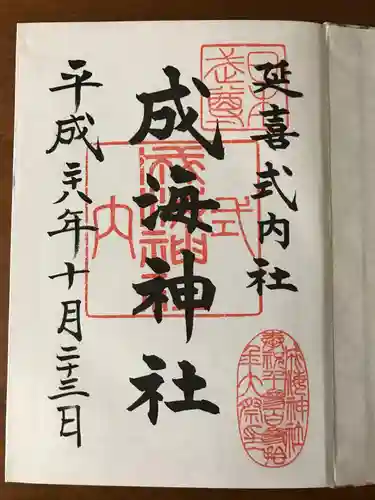 延喜式内社
成海神社
平成廿八年十月二十三日
式内
成海神社